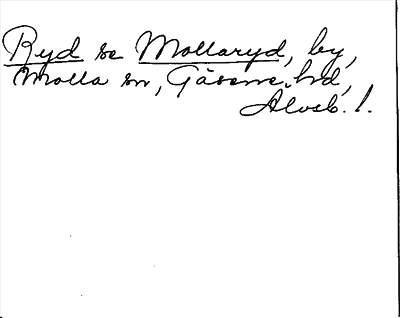 Ryd se Mollaryd, by,
Molla sn, Gäsene hd,
Älvsb. l.